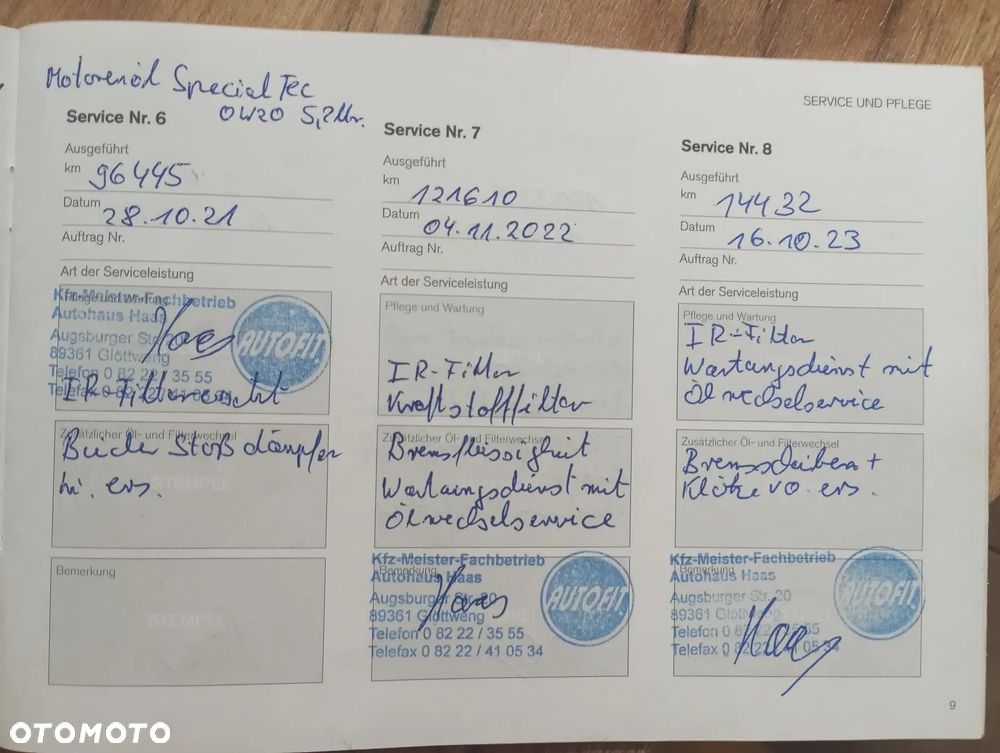 SERVICE UND PFLEGE
Motorenöl Special Tec
0W20 5,2 ltr.
Service Nr. 6
Ausgeführt
km 96445
Datum 28.10.21
Auftrag Nr.
Art der Serviceleistung
Pflege und Wartung
Kfz-Meister-Fachbetrieb
Autohaus Haas
Augsburger Str.
89361 Glöttweng
Telefon 0 82 22 / 35 55
Telefax 0 82 22
Haas
AUTOFIT
IR-Filter
Zusätzlicher Öl- und Filterwechsel
Beide Stoßdämpfer
hi. ers.
STEMPEL
Bemerkung
STEMPEL
Service Nr. 7
Ausgeführt
km 121610
Datum 04.11.2022
Auftrag Nr.
Art der Serviceleistung
Pflege und Wartung
IR-Filter
Kraftstofffilter
Zusätzlicher Öl- und Filterwechsel
Bremsflüssigkeit
Wartungsdienst mit
Ölwechselservice
Bemerkung
Kfz-Meister-Fachbetrieb
Autohaus Haas
Augsburger Str. 20
89361 Glöttweng
Telefon 0 82 22 / 35 55
Telefax 0 82 22 / 41 05 34
Haas
AUTOFIT
Service Nr. 8
Ausgeführt
km 14432
Datum 16.10.23
Auftrag Nr.
Art der Serviceleistung
Pflege und Wartung
IR-Filter
Wartungsdienst mit
Ölwechselservice
Zusätzlicher Öl- und Filterwechsel
Bremsscheiben +
Klötze vo. ers.
Bemerkung
Kfz-Meister-Fachbetrieb
Autohaus Haas
Augsburger Str. 20
89361 Glöttweng
Telefon 0 82 22 / 35 55
Telefax 0 82 22 / 41 05 34
Haas
AUTOFIT
9
OTOMOTO